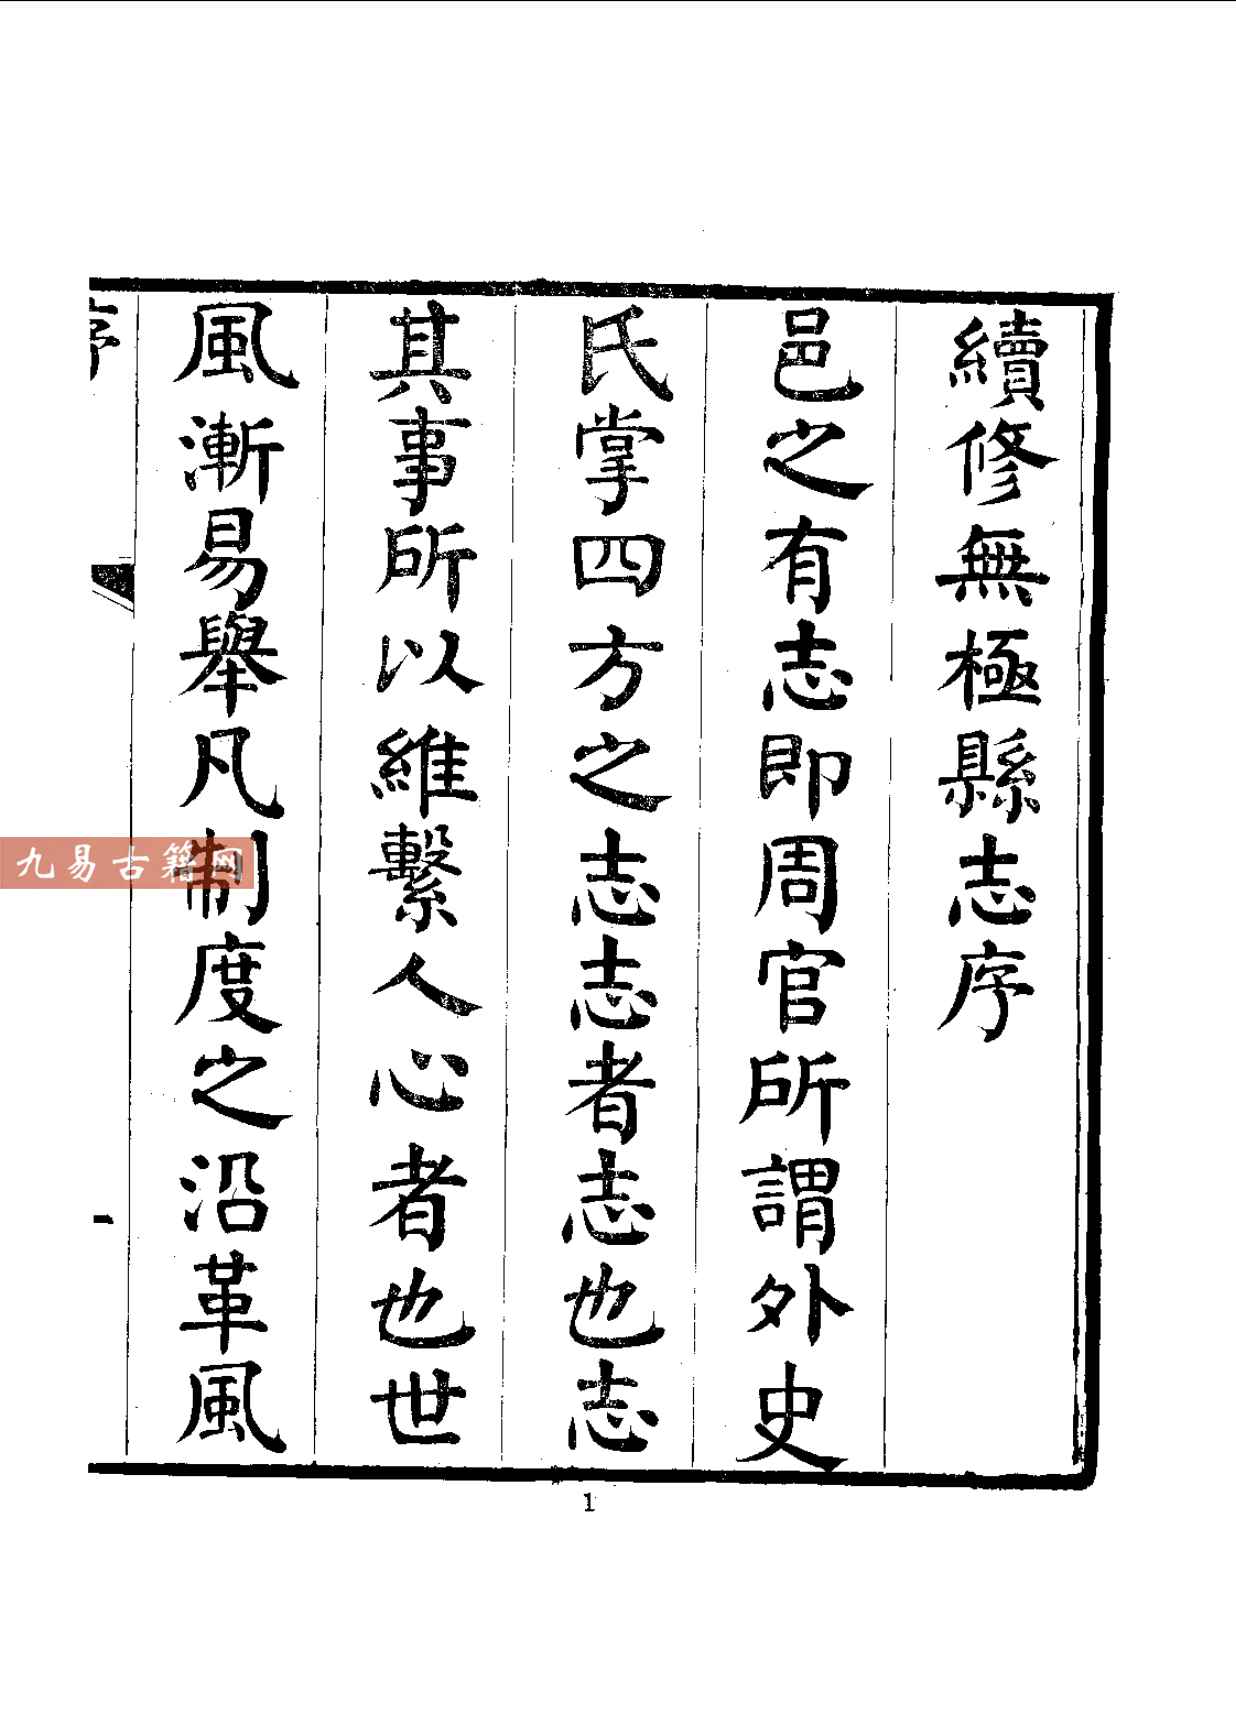 續修無極縣志序
邑之有志即周官所謂外史
氏掌四方之志志者志也志
其事所以維繫人心者也世
風漸易舉凡制度之沿革風
序
一
九易古籍网
1